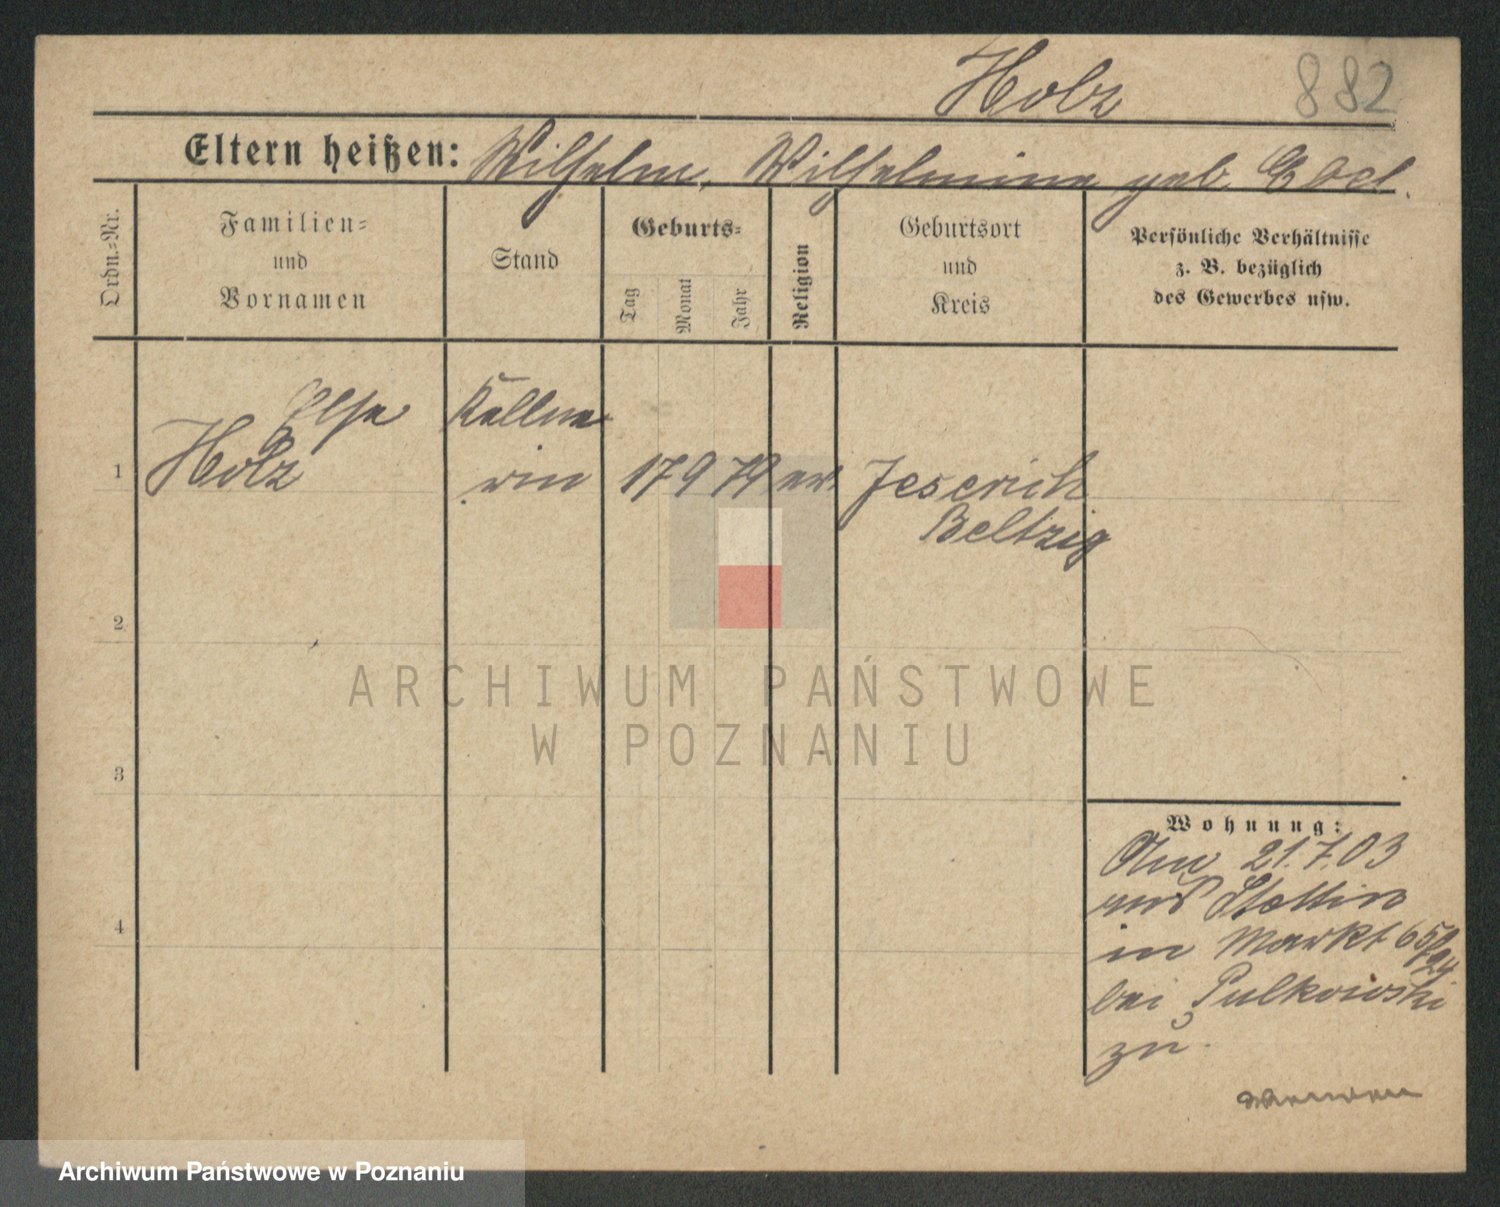 Holz 882
Eltern heißen: Wilhelm, Wilhelmine geb.
Ordn.=Nr.
Familien=
und
Vornamen
Stand
Geburts=
Tag
Monat
Jahr
Religion
Geburtsort
und
Kreis
Persönliche Verhältnisse
z. B. bezüglich
des Gewerbes usw.
Else
1 Holz
Kellne
rin
17 9 79 ev. Jeserich
Beltzig
2
3
4
ARCHIWUM PAŃSTWOWE
W POZNANIU
Wohnung:
Am 21.7.03
aus Stettin
in Markt 65
bei Pulkowski
zu.
Archiwum Państwowe w Poznaniu